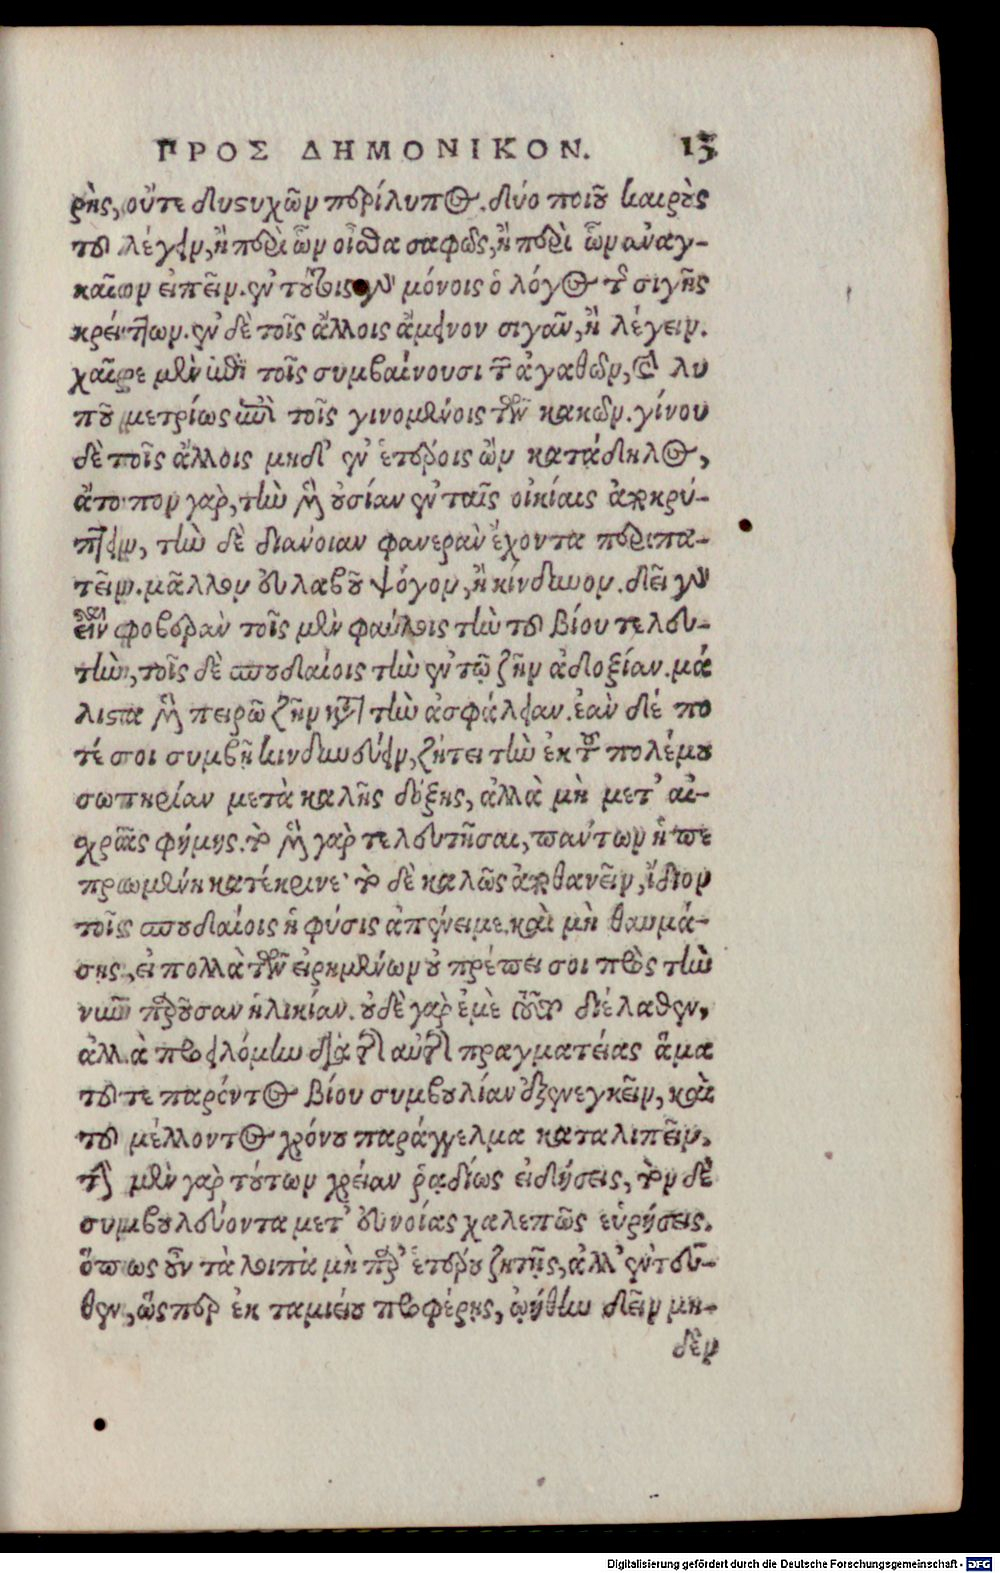 ΠΡΟΣ ΔΗΜΟΝΙΚΟΝ. 13
ρὴς, οὔτε δυστυχῶν περίλυπος. δύο ποιοῦ καιροὺς
τοῦ λέγειν, ἢ περὶ ὧν οἶσθα σαφῶς, ἢ περὶ ὧν ἀναγ-
καῖον εἰπεῖν. ἐν τούτοις γὰρ μόνοις ὁ λόγος τῆς σιγῆς
κρείττων. ἐν δὲ τοῖς ἄλλοις ἄμεινον σιγᾶν, ἢ λέγειν.
χαῖρε μὲν ἐπὶ τοῖς συμβαίνουσι τῶν ἀγαθῶν, καὶ λυ
ποῦ μετρίως ἐπὶ τοῖς γινομένοις τῶν κακῶν. γίνου
δὲ τοῖς ἄλλοις μηδ' ἐν ἑτέροις ὢν κατάδηλος,
ἄτοπον γὰρ, τὴν μὲν οὐσίαν ἐν ταῖς οἰκίαις ἀποκρύ-
πτειν, τὴν δὲ διάνοιαν φανερὰν ἔχοντα περιπα-
τεῖν. μᾶλλον εὐλαβοῦ ψόγον, ἢ κίνδυνον. δεῖ γὰρ
εἶναι φοβερὰν τοῖς μὲν φαύλοις τὴν τοῦ βίου τελευ-
τὴν, τοῖς δὲ σπουδαίοις τὴν ἐν τῷ ζῆν ἀδοξίαν. μά
λιστα μὲν πειρῶ ζῆν κατὰ τὴν ἀσφάλειαν. ἐὰν δέ πο
τέ σοι συμβῇ κινδυνεύειν, ζήτει τὴν ἐκ τοῦ πολέμου
σωτηρίαν μετὰ καλῆς δόξης, ἀλλὰ μὴ μετ' αἰ-
σχρᾶς φήμης. τὸ μὲν γὰρ τελευτῆσαι, πάντων ἡ πε
πρωμένη κατέκρινε· τὸ δὲ καλῶς ἀποθανεῖν, ἴδιον
τοῖς σπουδαίοις ἡ φύσις ἀπένειμε. καὶ μὴ θαυμά-
σῃς, εἰ πολλὰ τῶν εἰρημένων οὐ πρέπει σοι πρὸς τὴν
νῦν παροῦσαν ἡλικίαν. οὐδὲ γὰρ ἐμὲ τοῦτο διέλαθεν,
ἀλλὰ προειλόμην διὰ τῆς αὐτῆς πραγματείας ἅμα
τοῦ τε παρόντος βίου συμβουλίαν ἐξενεγκεῖν, καὶ
τοῦ μέλλοντος χρόνου παράγγελμα καταλιπεῖν.
τὴν μὲν γὰρ τούτων χρείαν ῥᾳδίως εἰδήσεις, τὸν δὲ
συμβουλεύοντα μετ' εὐνοίας χαλεπῶς εὑρήσεις.
ὅπως οὖν τὰ λοιπὰ μὴ παρ' ἑτέρου ζητῇς, ἀλλ' ἐντεῦ-
θεν, ὥσπερ ἐκ ταμιείου προφέρῃς, ᾠήθην δεῖν μη-
δὲν
Digitalisierung gefördert durch die Deutsche Forschungsgemeinschaft - DFG